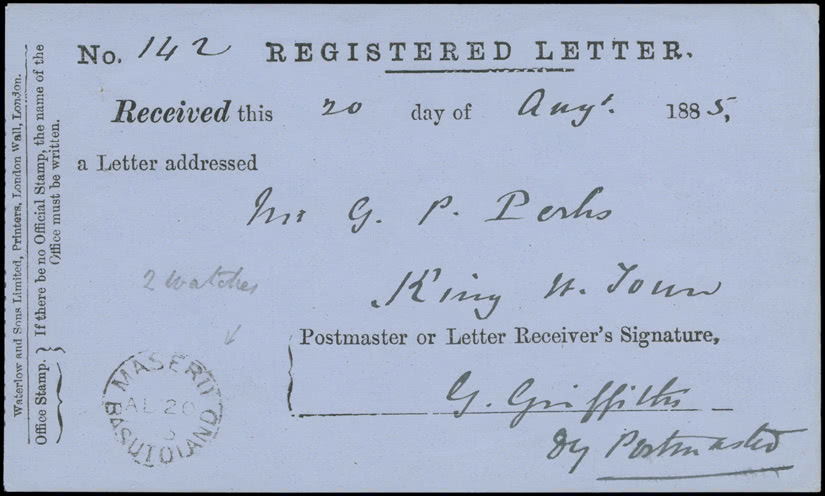 No. 142 REGISTERED LETTER.
Received this 20 day of Augt. 1885,
a Letter addressed
Mr G. P. Perks
King W. Town
2 watches
Postmaster or Letter Receiver's Signature,
G. Griffiths
Dy Postmaster
MASERU
AU 20
BASUTOLAND
Office Stamp. } If there be no Official Stamp, the name of the
Office must be written.
Waterlow and Sons Limited, Printers, London Wall, London.